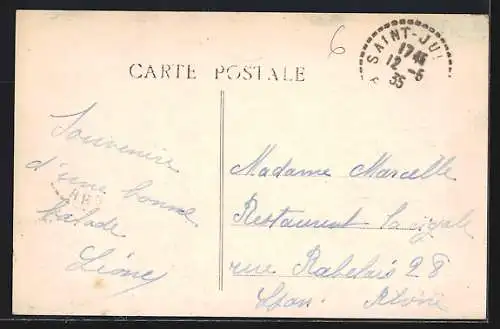 6
SAINT-JU
1745
12-6
35
CARTE POSTALE
Souvenire
d'une bonne
balade
Léone
Madame Marcelle
Restaurent la cigale
rue Rabelais 28
Lyon. Rhône